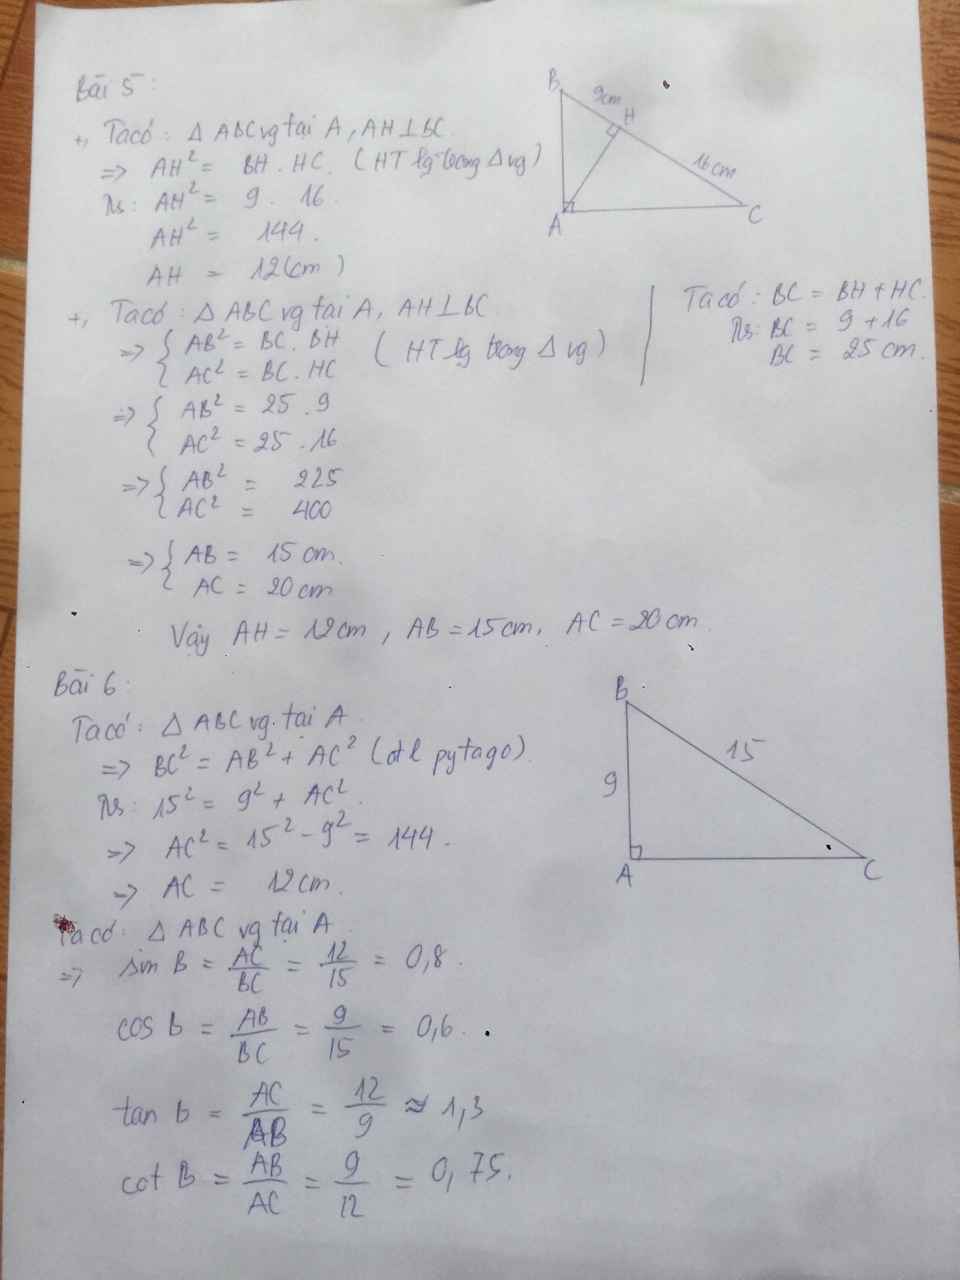 Bài 5:
B
9cm
H
16cm
A
C
+, Ta có: Δ ABC vg tại A, AH ⊥ BC.
=> AH² = BH . HC. (HT lg trong Δ vg)
AH² = 9 . 16.
AH² = 144.
AH = 12(cm)
+, Ta có: Δ ABC vg tại A, AH ⊥ BC.
=> { AB² = BC . BH
AC² = BC . HC (HT lg trong Δ vg)
=> { AB² = 25 . 9
AC² = 25 . 16
=> { AB² = 225
AC² = 400
=> { AB = 15 cm.
AC = 20 cm
Ta có: BC = BH + HC.
BC = 9 + 16
BC = 25 cm.
Vậy AH = 12cm, AB = 15cm, AC = 20 cm.
Bài 6:
Ta có: Δ ABC vg tại A
=> BC² = AB² + AC² (đl pytago).
15² = 9² + AC².
=> AC² = 15² - 9² = 144.
=> AC = 12cm.
B
15
9
A
C
Ta có: Δ ABC vg tại A
=> sin B = AC/BC = 12/15 = 0,8.
cos B = AB/BC = 9/15 = 0,6.
tan B = AC/AB = 12/9 ≈ 1,3
cot B = AB/AC = 9/12 = 0,75.